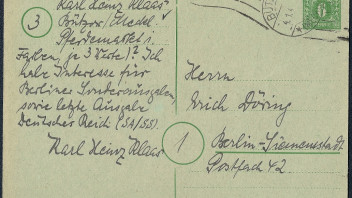 Karl Heinz Klaas
3
Bützow/Meckl.
Pferdemarkt 1.
Farben, je 3 Werte)? Ich
habe Interesse für
Berliner Sonderausgaben,
sowie letzte Ausgabe
Deutsches Reich (SA/SS).
Karl Heinz Klaas
Herrn
Erich Döring
1
Berlin-Siemensstadt
Postfach 42